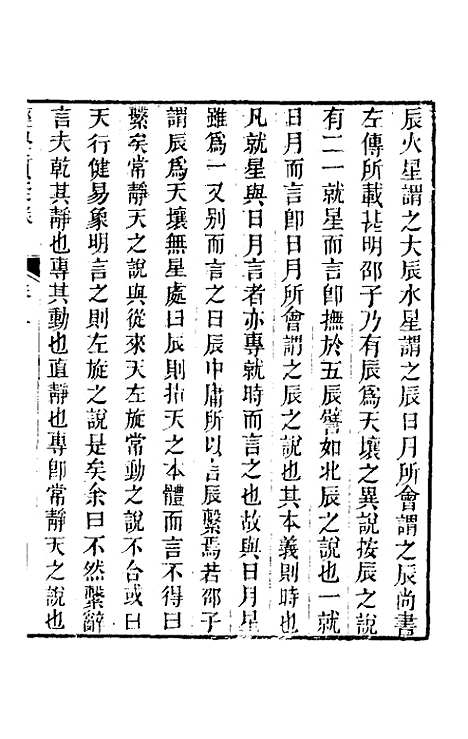 辰火星謂之大辰水星謂之辰日月所會謂之辰尚書
左傳所載甚明邵子乃有辰爲天壤之異說按辰之說
有二一就星而言卽撫於五辰譬如北辰之說也一就
日月而言卽日月所會謂之辰之說也其本義則時也
凡就星與日月言者亦專就時而言之也故與日月星
雖爲一又別而言之曰辰中庸所以言辰繫焉若邵子
謂辰爲天壤無星處曰辰則指天之本體而言不得曰
繫矣常靜天之說與從來天左旋常動之說不合或曰
天行健易象明言之則左旋之說是矣余曰不然繫辭
言夫乾其靜也專其動也直靜也專卽常靜天之說也